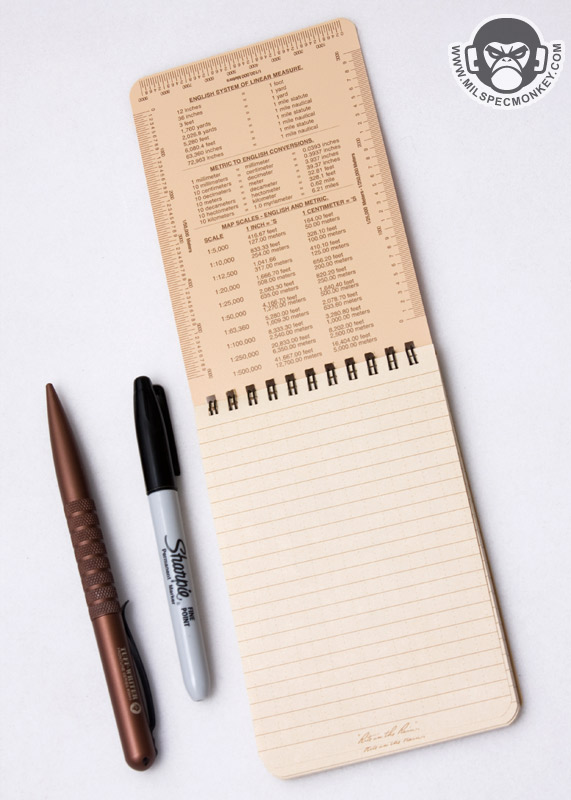 WWW.MILSPECMONKEY.COM
ENGLISH SYSTEM OF LINEAR MEASURE.
12 inches " 1 foot
36 inches " 1 yard
3 feet " 1 yard
1,760 yards " 1 mile statute
2,026.8 yards " 1 mile nautical
5,280 feet " 1 mile statute
6,080.4 feet " 1 mile nautical
63,360 inches " 1 mile statute
72,963 inches " 1 mile nautical
METRIC TO ENGLISH CONVERSIONS.
1 millimeter " millimeter " 0.0393 inches
10 millimeters " centimeter " 0.3937 inch
10 centimeters " decimeter " 3.937 inch
10 decimeters " meter " 39.37 inch
10 meters " decameter " 32.81 feet
10 decameters " hectometer " 328.1 feet
10 hectometers " kilometer " 0.62 mile
10 kilometers " 1.0 myriometer " 6.21 miles
MAP SCALES - ENGLISH AND METRIC.
SCALE 1 INCH = 'S 1 CENTIMETER = 'S
1:5,000 416.67 feet 164.00 feet
127.00 meters 50.00 meters
1:10,000 833.33 feet 328.10 feet
254.00 meters 100.00 meters
1:12,500 1,041.66 410.10 feet
317.00 meters 125.00 meters
1:20,000 1,666.70 feet 656.20 feet
508.00 meters 200.00 meters
1:25,000 2,083.30 feet 820.20 feet
635.00 meters 250.00 meters
1:50,000 4,166.70 feet 1,640.40 feet
1,270.00 meters 500.00 meters
1:63,360 5,280.00 feet 2,078.70 feet
1,609.30 meters 633.60 meters
1:100,000 8,333.30 feet 3,280.80 feet
2,540.00 meters 1,000.00 meters
1:250,000 20,833.00 feet 8,202.00 feet
6,350.00 meters 2,500.00 meters
1:500,000 41,667.00 feet 16,404.00 feet
12,700.00 meters 5,000.00 meters
Sharpie
Permanent Marker
FINE
POINT
TUFF-WRITER
"Rite in the Rain"